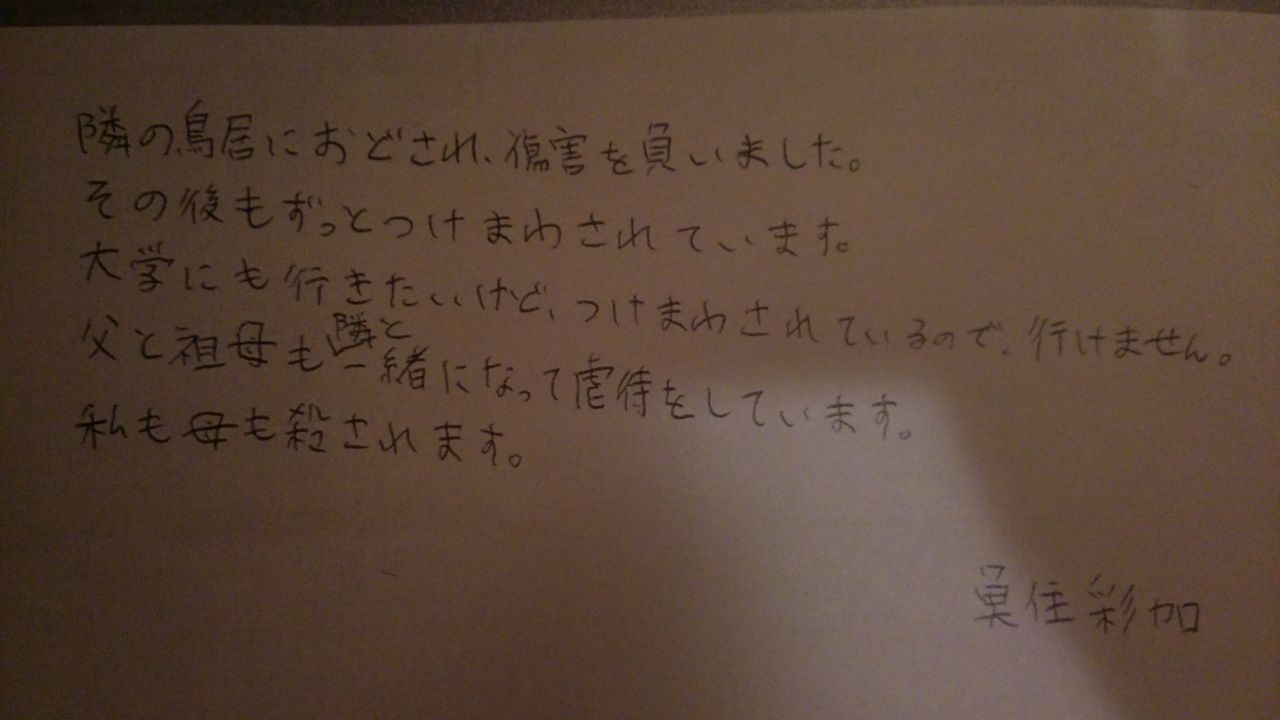 隣の鳥居におどされ、傷害を負いました。
その後もずっとつけまわされています。
大学にも行きたいけど、つけまわされているので、行けません。
父と祖母も隣と一緒になって虐待をしています。
私も母も殺されます。
住彩加